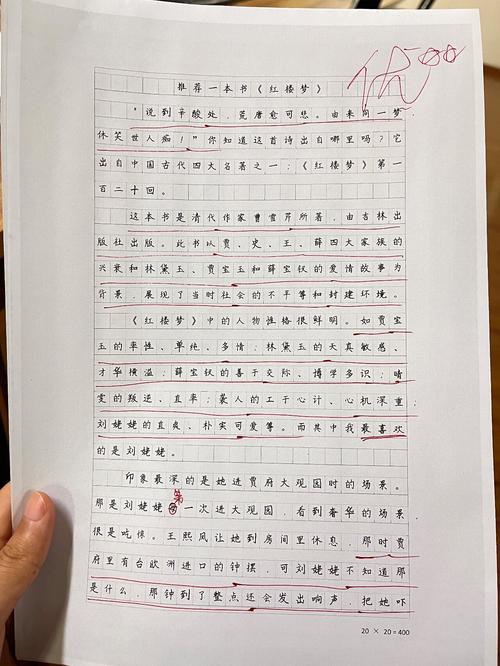 优
推荐一本书《红楼梦》
“说到辛酸处，荒唐愈可悲。由来同一梦，
休笑世人痴！”你知道这首诗出自哪里吗？它
出自中国古代四大名著之一：《红楼梦》第一
百二十回。
这本书是清代作家曹雪芹所著，由吉林出
版社出版。此书以贾、史、王、薛四大家族的
兴衰和林黛玉、贾宝玉和薛宝钗的爱情故事为
背景，展现了当时社会的不平等和封建环境。
《红楼梦》中的人物性格很鲜明。如贾宝
玉的率性、单纯、多情；林黛玉的天真敏感、
才华横溢；薛宝钗的善于交际、博学多识；晴
雯的叛逆、直率；袭人的工于心计、心机深重；
刘姥姥的直爽、朴实可爱等。而其中我最喜欢
的是刘姥姥。
印象最深的是她进贾府大观园时的场景。
第
那是刘姥姥一次进大观园，看到奢华的场景
很是吃惊。王熙凤让她到房间里休息，那时贾
府里有台欧洲进口的钟摆，可刘姥姥不知道那
是什么，那钟到了整点还会发出响声，把她吓
20 × 20=400